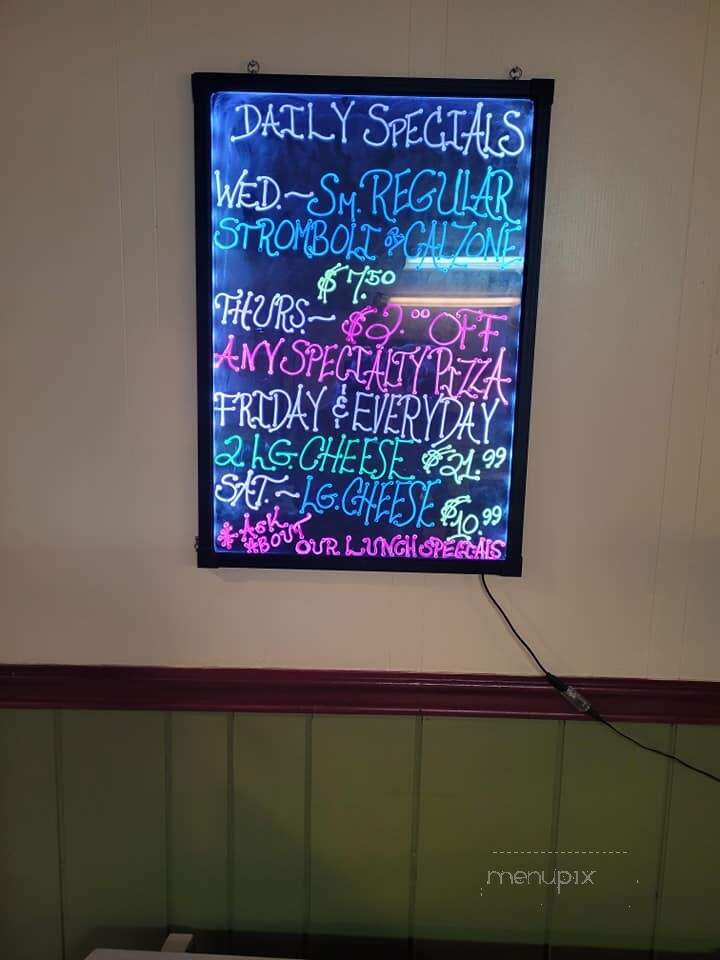 DAILY SPECIALS
WED.~ SM. REGULAR
STROMBOLI or CALZONE
$7.50
THURS~ $2.00 OFF
ANY SPECIALTY PIZZA
FRIDAY & EVERYDAY
2 LG. CHEESE $21.99
SAT.~ LG. CHEESE $10.99
*ASK ABOUT OUR LUNCH SPECIALS
menupix